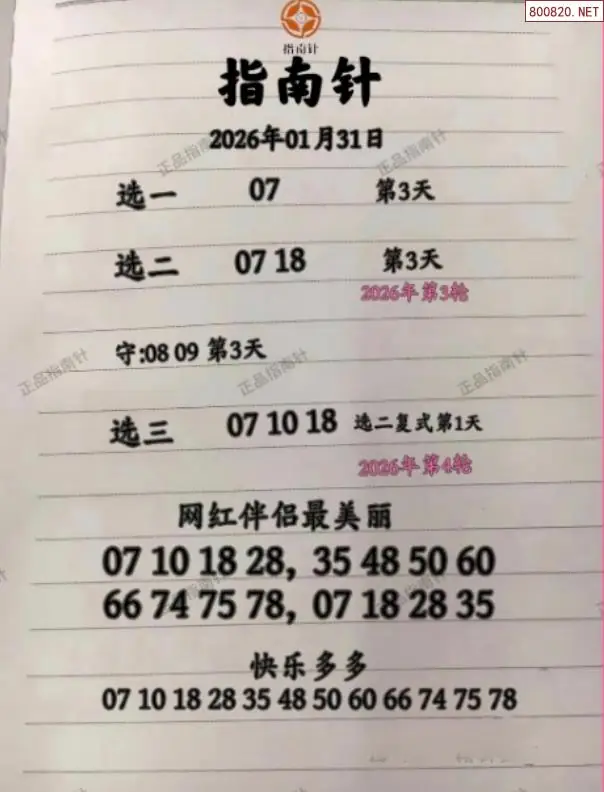 800820.NET
指南针
指南针
2026年01月31日
正品指南针
正品指南针
选一 07 第3天
选二 07 18 第3天
2026年第3轮
守:08 09 第3天
正品指南针
正品指南针
正品指南针
选三 07 10 18 选二复式第1天
2026年第4轮
网红伴侣最美丽
07 10 18 28, 35 48 50 60
66 74 75 78, 07 18 28 35
快乐多多
07 10 18 28 35 48 50 60 66 74 75 78